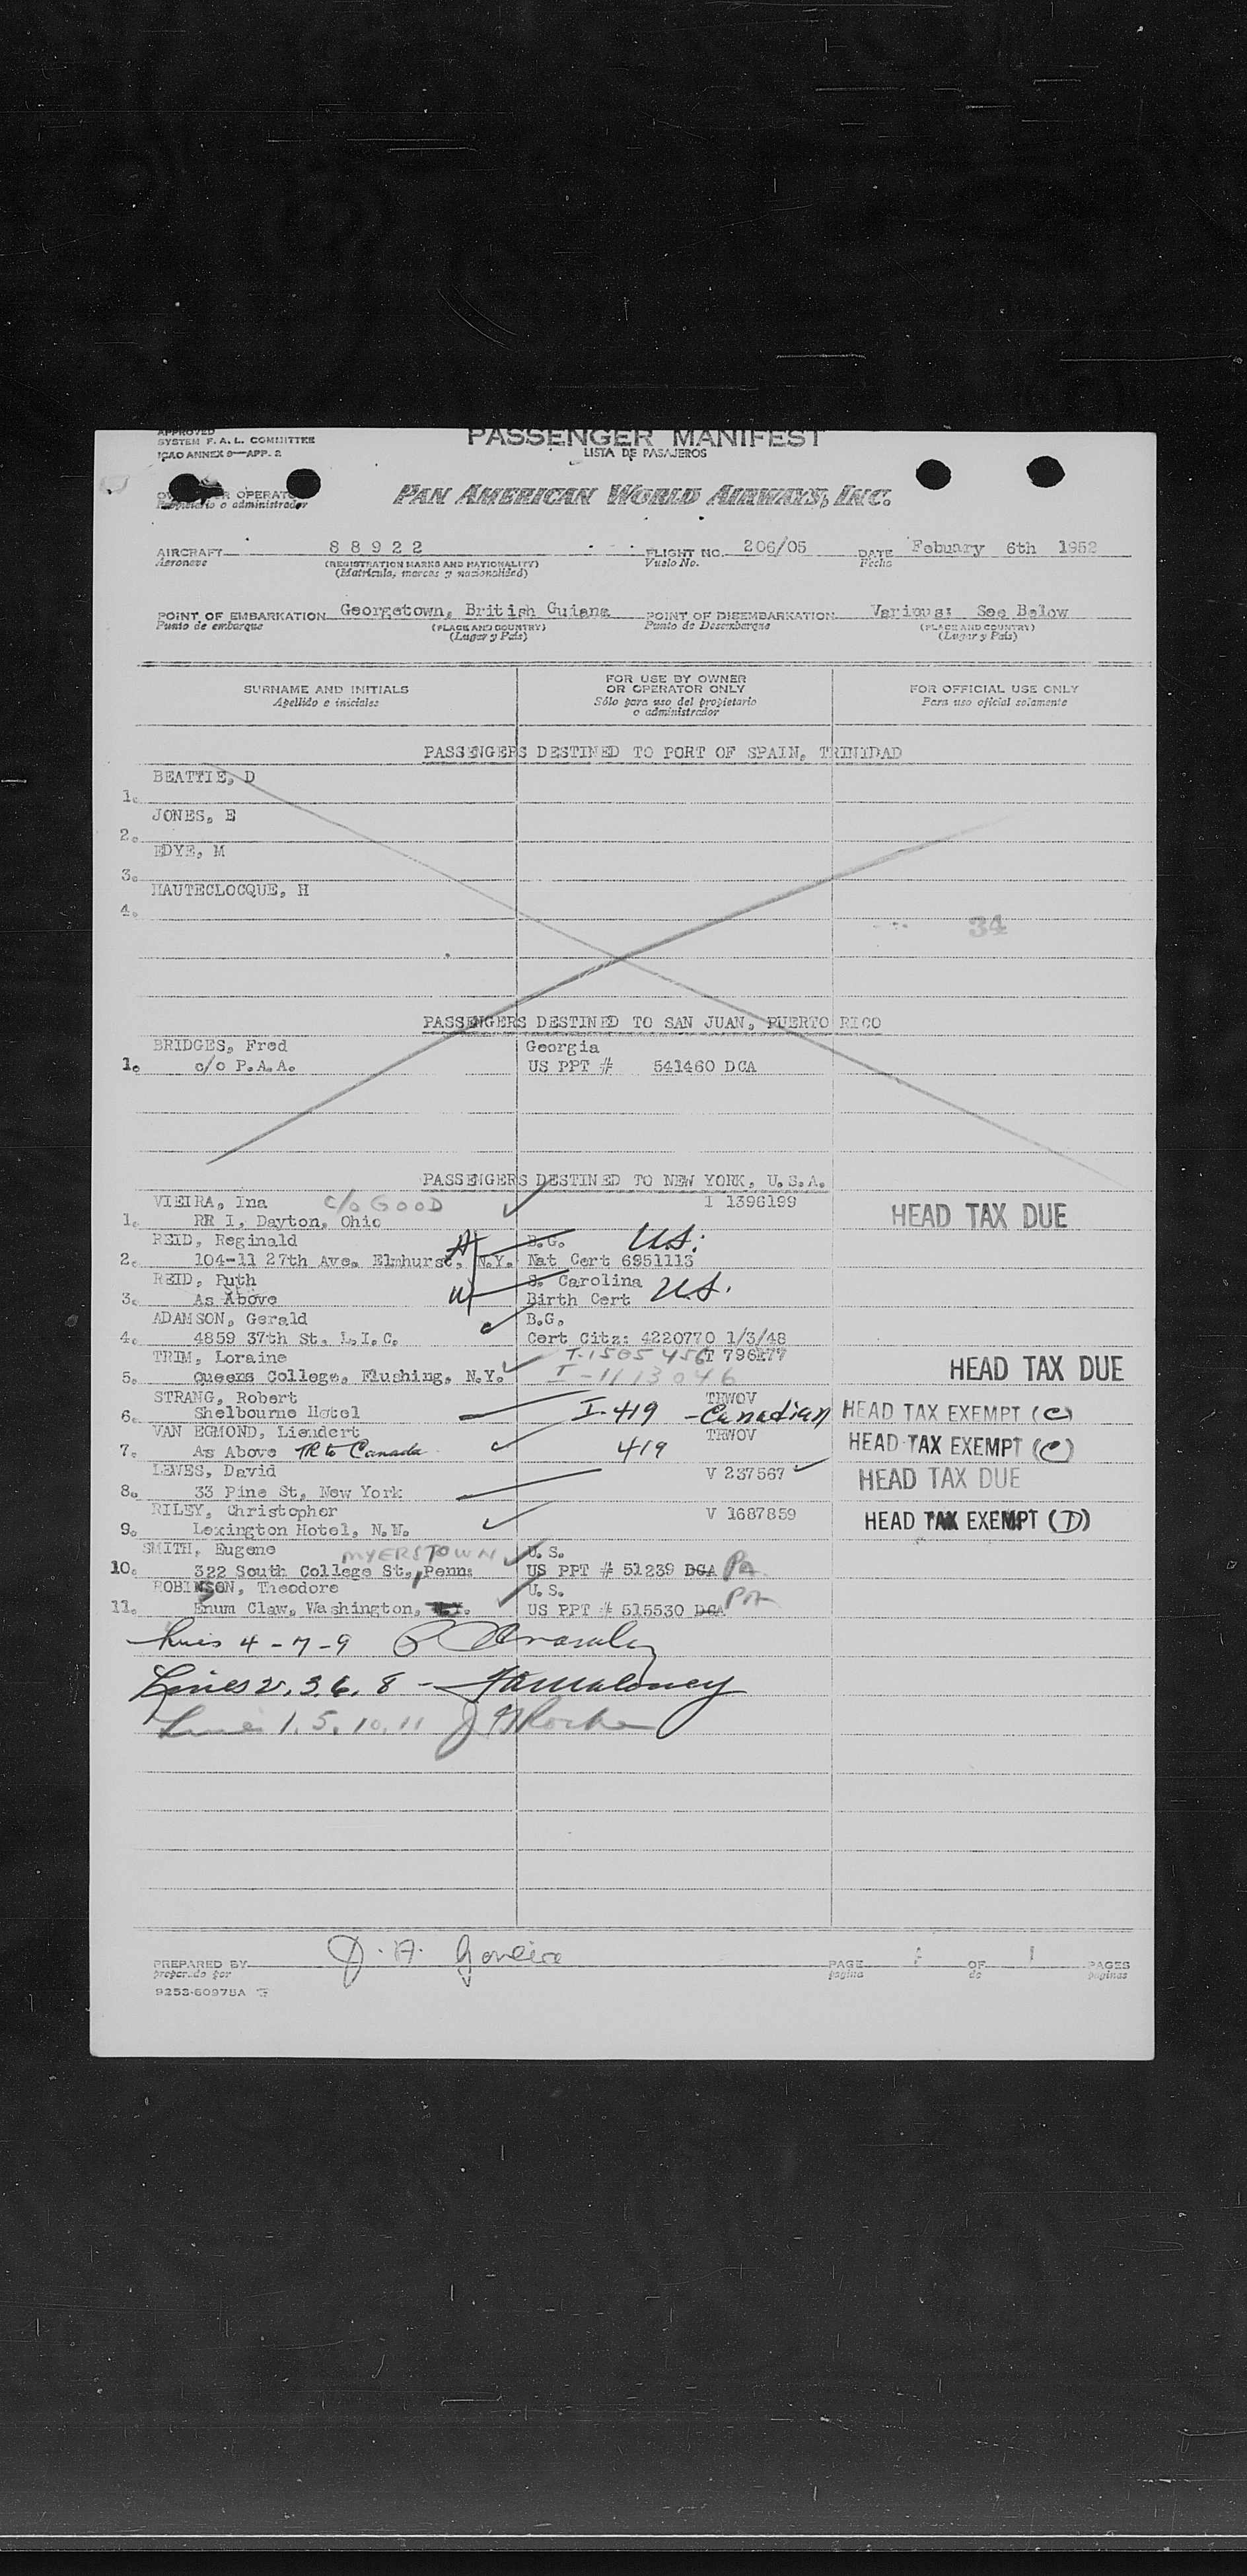 APPROVED
SYSTEM F. A. L. COMMITTEE
ICAO ANNEX 9—APP. 2
PASSENGER MANIFEST
LISTA DE PASAJEROS
OPERATOR
Propietario o administrador
PAN AMERICAN WORLD AIRWAYS, INC.
AIRCRAFT 88922 FLIGHT NO. 206/05 DATE Febuary 6th 1952
Aeronave (REGISTRATION MARKS AND NATIONALITY) Vuelo No. Fecha
(Matrícula, marcas y nacionalidad)
POINT OF EMBARKATION Georgetown, British Guiana POINT OF DISEMBARKATION Various: See Below
Punto de embarque (PLACE AND COUNTRY) Punto de Desembarque (PLACE AND COUNTRY)
(Lugar y País) (Lugar y País)
SURNAME AND INITIALS FOR USE BY OWNER OR OPERATOR ONLY FOR OFFICIAL USE ONLY
Apellido e iniciales Sólo para uso del propietario o administrador Para uso oficial solamente
PASSENGERS DESTINED TO PORT OF SPAIN, TRINIDAD
BEATTIE, D
1.
JONES, E
2.
EDYE, M
3.
HAUTECLOCQUE, H
4.
34
PASSENGERS DESTINED TO SAN JUAN, PUERTO RICO
BRIDGES, Fred Georgia
1. c/o P.A.A. US PPT # 541460 DCA
PASSENGERS DESTINED TO NEW YORK, U.S.A.
VIEIRA, Ina c/o GOOD I 1396199
1. RR I, Dayton, Ohio HEAD TAX DUE
REID, Reginald B.G. U.S.
2. 104-11 27th Ave. Elmhurst, N.Y. Nat Cert 6951113
REID, Ruth S. Carolina
3. As Above Birth Cert U.S.
ADAMSON, Gerald B.G.
4. 4859 37th St. L.I.C. Cert Citz: 4220770 1/3/48
TRIM, Loraine T-1505456
5. Queens College, Flushing, N.Y. I-1113046 HEAD TAX DUE
STRANG, Robert TRWOV
6. Shelbourne Hotel I-419 -Canadian HEAD TAX EXEMPT (C)
VAN EGMOND, Liendert TRWOV
7. As Above TR to Canada 419 HEAD TAX EXEMPT (C)
LEWES, David V 237567
8. 33 Pine St, New York HEAD TAX DUE
RILEY, Christopher V 1687859
9. Lexington Hotel, N.Y. HEAD TAX EXEMPT (D)
SMITH, Eugene MYERSTOWN U.S.
10. 322 South College St, Penn: US PPT # 51239 DCA PA
ROBINSON, Theodore U.S.
11. Enum Claw, Washington, US PPT # 515530 DCA PA
Lines 4-7-9
Lines 2, 3, 6, 8 -
Lines 1, 5, 10, 11
PREPARED BY PAGE 1 OF 1 PAGES
preparado por página de páginas
9253-60975A